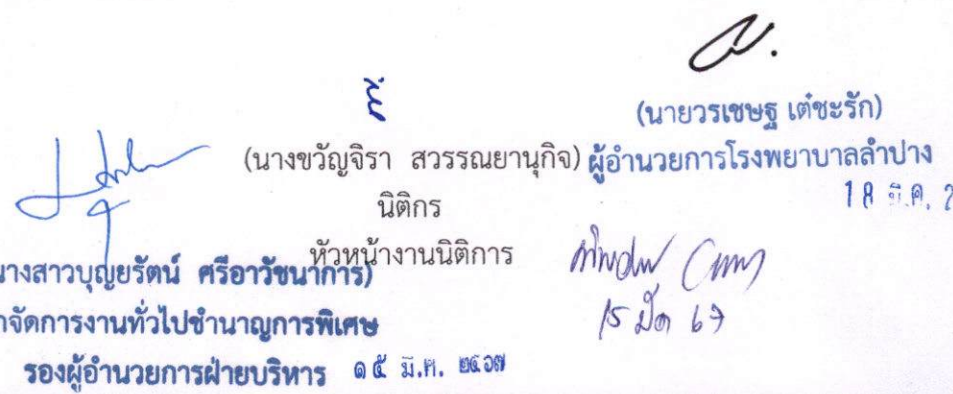 (นายวรเชษฐ เต๋ชะรัก)
ผู้อำนวยการโรงพยาบาลลำปาง
18 มี.ค. 2
(นางขวัญจิรา สวรรณยานุกิจ)
นิติกร
หัวหน้างานนิติการ
นางสาวบุญยรัตน์ ศรีอาวัชนาการ)
จัดการงานทั่วไปชำนาญการพิเศษ
รองผู้อำนวยการฝ่ายบริหาร ๑๕ มี.ค. ๒๕๖๗
15 มีค 67